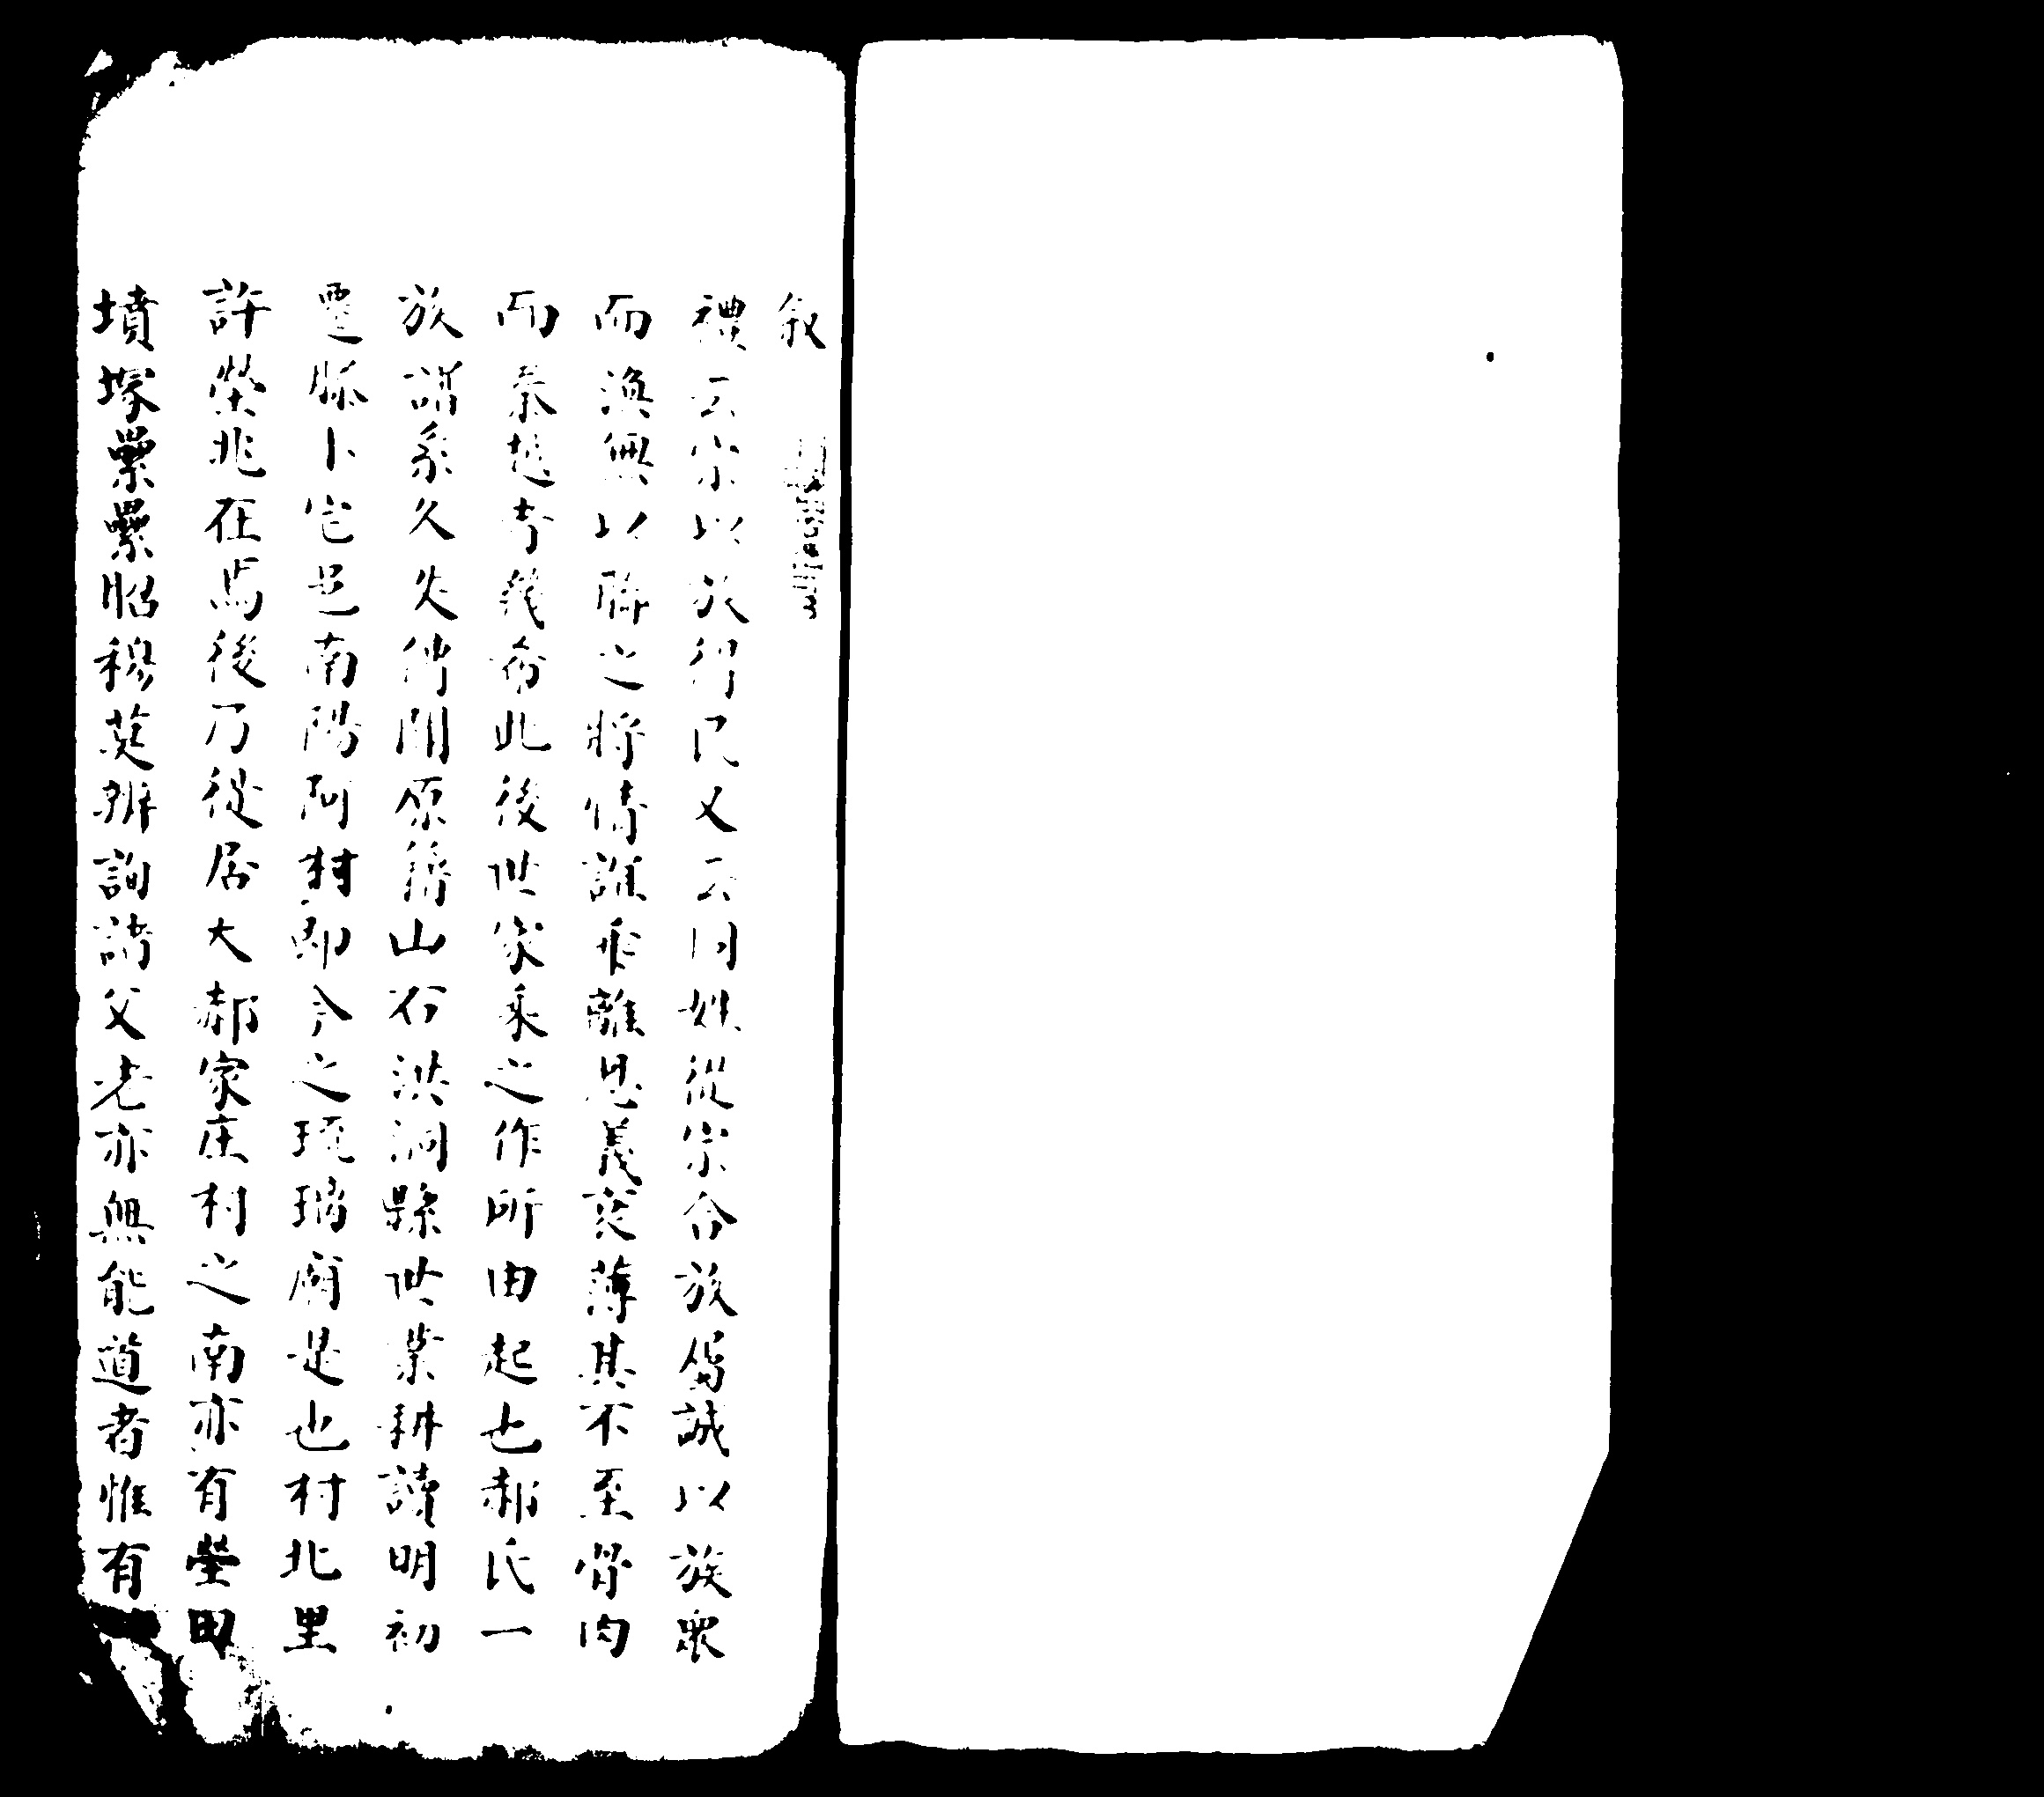 敘
禮云宗以族得民又云同姓從宗合族屬誠以族眾
而渙無以聯之將情誼乖離恩義衰薄其不至骨肉
而秦越者幾希此後世家乘之作所由起也郝氏一
族譜系久失傳聞原籍山右洪洞縣世業耕讀明初
遷縣卜宅邑南陽阿村即今之琉璃廟是也村北里
許塋兆在焉後乃徙居大郝家庄村之南亦有塋田
墳塚纍纍昭穆莫辨詢諸父老亦無能道者惟有